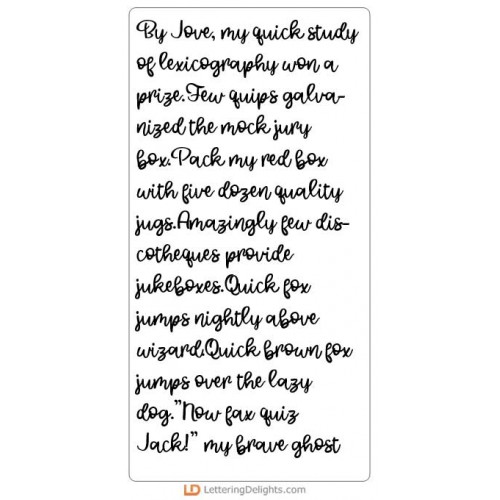 By Jove, my quick study
of lexicography won a
prize.Few quips galva-
nized the mock jury
box.Pack my red box
with five dozen quality
jugs.Amazingly few dis-
cotheques provide
jukeboxes.Quick fox
jumps nightly above
wizard.Quick brown fox
jumps over the lazy
dog."Now fax quiz
Jack!" my brave ghost
LD LetteringDelights.com